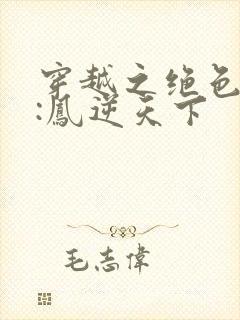 穿越之绝色
:鳳逆天下
毛志偉